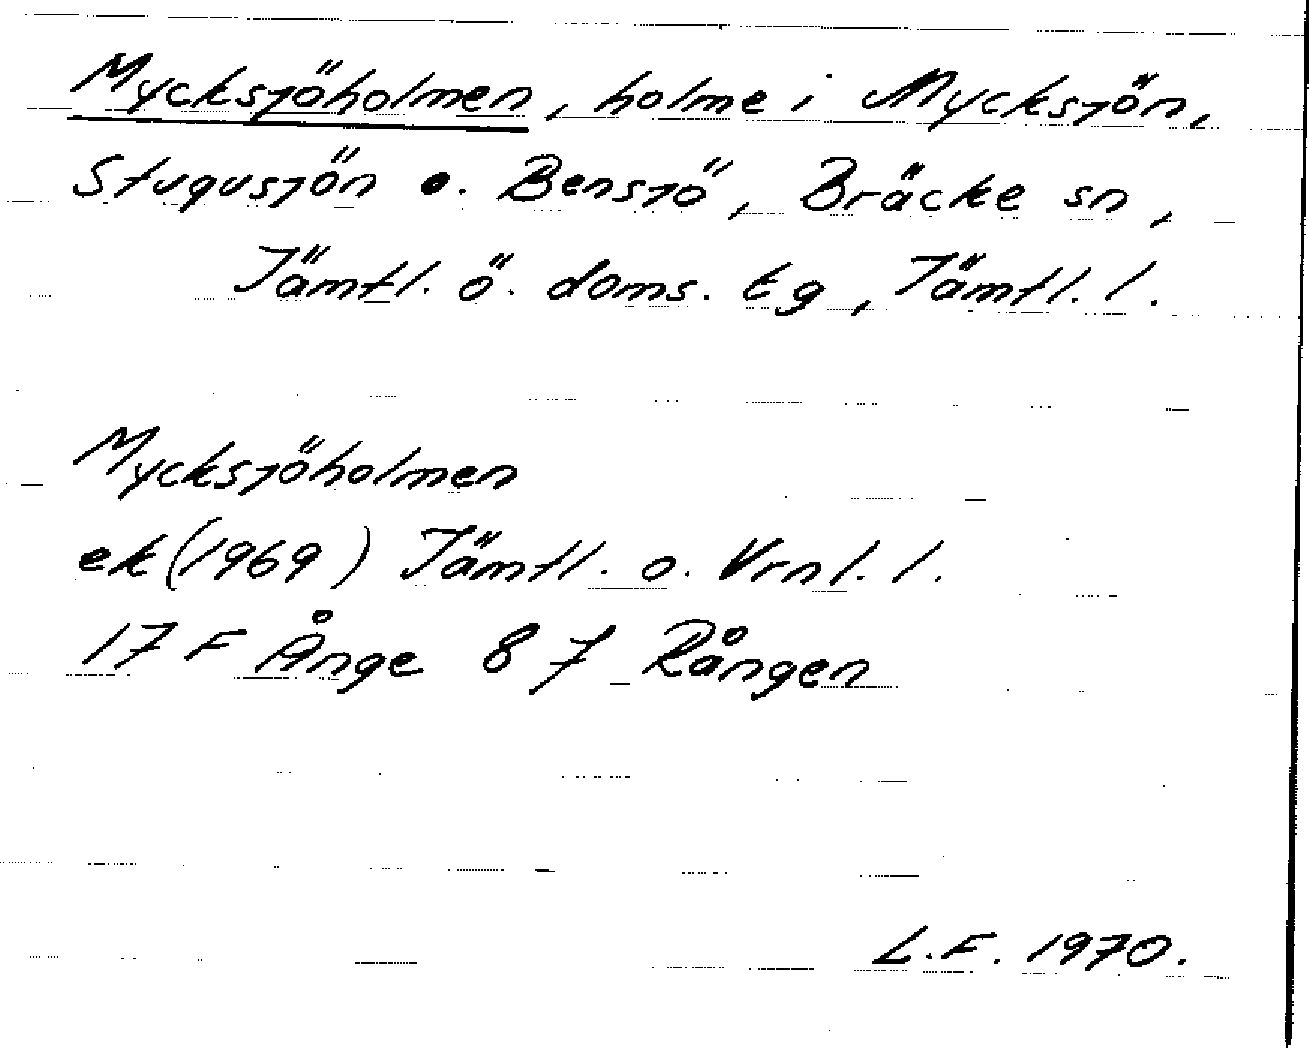 Mycksjöholmen, holme i Mycksjön,
Stugusjön o. Bensjö, Bräcke sn,
Jämtl. ö. doms. tg, Jämtl. l.
Mycksjöholmen
ek (1969) Jämtl. o. Vrnl. l.
17 F Ånge 8 j Rången
L.F. 1970.